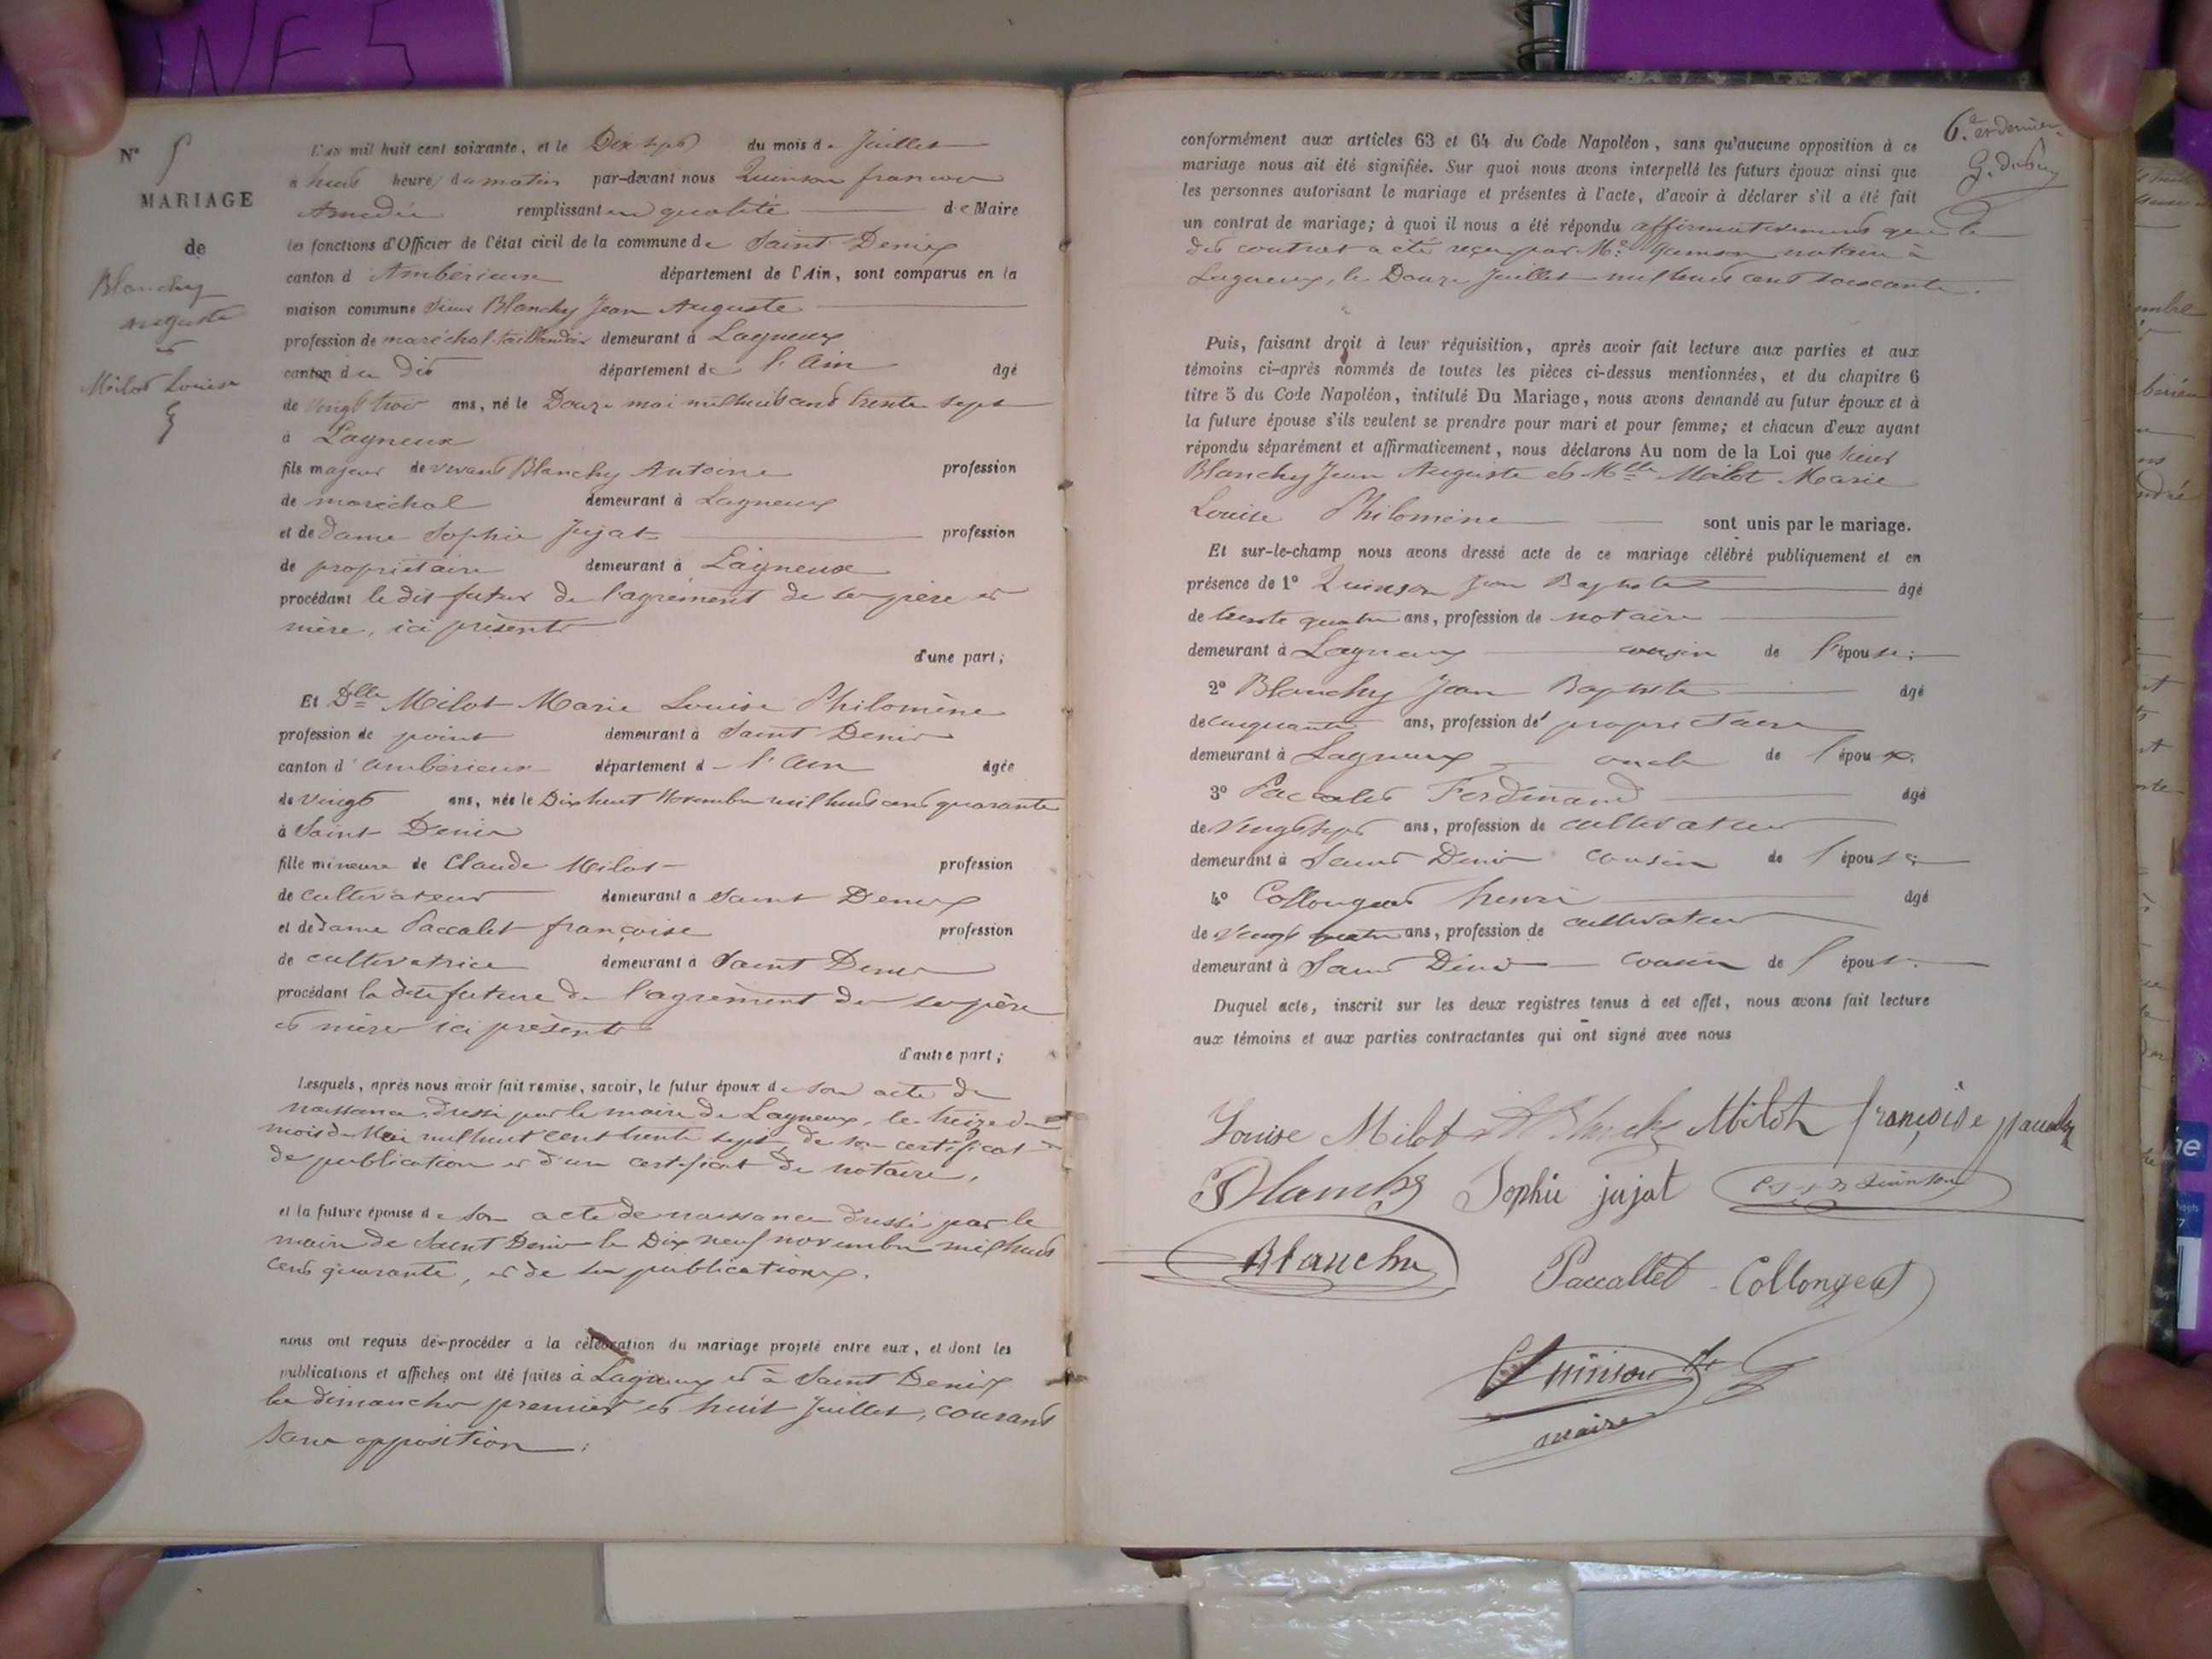 INF 5
N° 5
MARIAGE
de
Blanchy
auguste
et
Milot Louise
L'an mil huit cent soixante, et le Dix sept du mois de Juillet
à huit heures du matin par-devant nous Quinson françois
Amedée remplissant en qualité de Maire
les fonctions d'Officier de l'état civil de la commune de Saint Denis
canton d'Ambérieux département de l'Ain, sont comparus en la
maison commune Sieur Blanchy Jean Auguste
profession de maréchal-taillandier demeurant à Lagneux
canton du dit département de l'Ain âgé
de vingt trois ans, né le Douze mai mil huit cent trente sept
à Lagneux
fils majeur de vivant Blanchy Antoine profession
de maréchal demeurant à Lagneux
et de Dame Sophie Jujat profession
de propriétaire demeurant à Lagneux
procédant le dit futur de l'agrément de ses père et
mère, ici présents
d'une part;
Et Dlle Milot Marie Louise Philomène
profession de point demeurant à Saint Denis
canton d'ambérieux département de l'Ain âgée
de vingt ans, née le Dix huit Novembre mil huit cent quarante
à Saint Denis
fille mineure de Claude Milot profession
de cultivateur demeurant à Saint Denis
et de Dame Paccalet françoise profession
de cultivatrice demeurant à Saint Denis
procédant la dite future de l'agrément de ses père
et mère ici présents
d'autre part;
Lesquels, après nous avoir fait remise, savoir, le futur époux de son acte de
naissance, dressé par le maire de Lagneux, le treize du
mois de Mai mil huit cent trente sept, de son certificat
de publication et d'un certificat de notaire,
et la future épouse de son acte de naissance dressé par le
maire de Saint Denis le Dix neuf novembre mil huit
cent quarante, et de ses publications.
nous ont requis de procéder à la célébration du mariage projeté entre eux, et dont les
publications et affiches ont été faites à Lagneux et à Saint Denis
les dimanches premier et huit Juillet, courant
sans opposition;
6e et dernier
conformément aux articles 63 et 64 du Code Napoléon, sans qu'aucune opposition à ce
mariage nous ait été signifiée. Sur quoi nous avons interpellé les futurs époux ainsi que
les personnes autorisant le mariage et présentes à l'acte, d'avoir à déclarer s'il a été fait
un contrat de mariage; à quoi il nous a été répondu affirmativement que le
dit contrat a été reçu par Me Quinson notaire à
Lagneux, le Douze Juillet mil huit cent soixante.
Puis, faisant droit à leur réquisition, après avoir fait lecture aux parties et aux
témoins ci-après nommés de toutes les pièces ci-dessus mentionnées, et du chapitre 6
titre 5 du Code Napoléon, intitulé Du Mariage, nous avons demandé au futur époux et à
la future épouse s'ils veulent se prendre pour mari et pour femme; et chacun d'eux ayant
répondu séparément et affirmativement, nous déclarons Au nom de la Loi que Sieur
Blanchy Jean Auguste et Mlle Milot Marie
Louise Philomène sont unis par le mariage.
Et sur-le-champ nous avons dressé acte de ce mariage célébré publiquement et en
présence de 1° Quinson Jean Baptiste âgé
de trente quatre ans, profession de notaire
demeurant à Lagneux cousin de l'épouse;
2° Blanchy Jean Baptiste âgé
de cinquante ans, profession de propriétaire
demeurant à Lagneux oncle de l'époux.
3° Paccalet Ferdinand âgé
de vingt sept ans, profession de cultivateur
demeurant à Saint Denis cousin de l'épouse;
4° Collonges henri âgé
de vingt quatre ans, profession de cultivateur
demeurant à Saint Denis cousin de l'épouse.
Duquel acte, inscrit sur les deux registres tenus à cet effet, nous avons fait lecture
aux témoins et aux parties contractantes qui ont signé avec nous
Louise Milot Milot françoise
Blanchy Sophie jujat Quinson
Blanchy Paccallet Collongeat
Quinson
maire